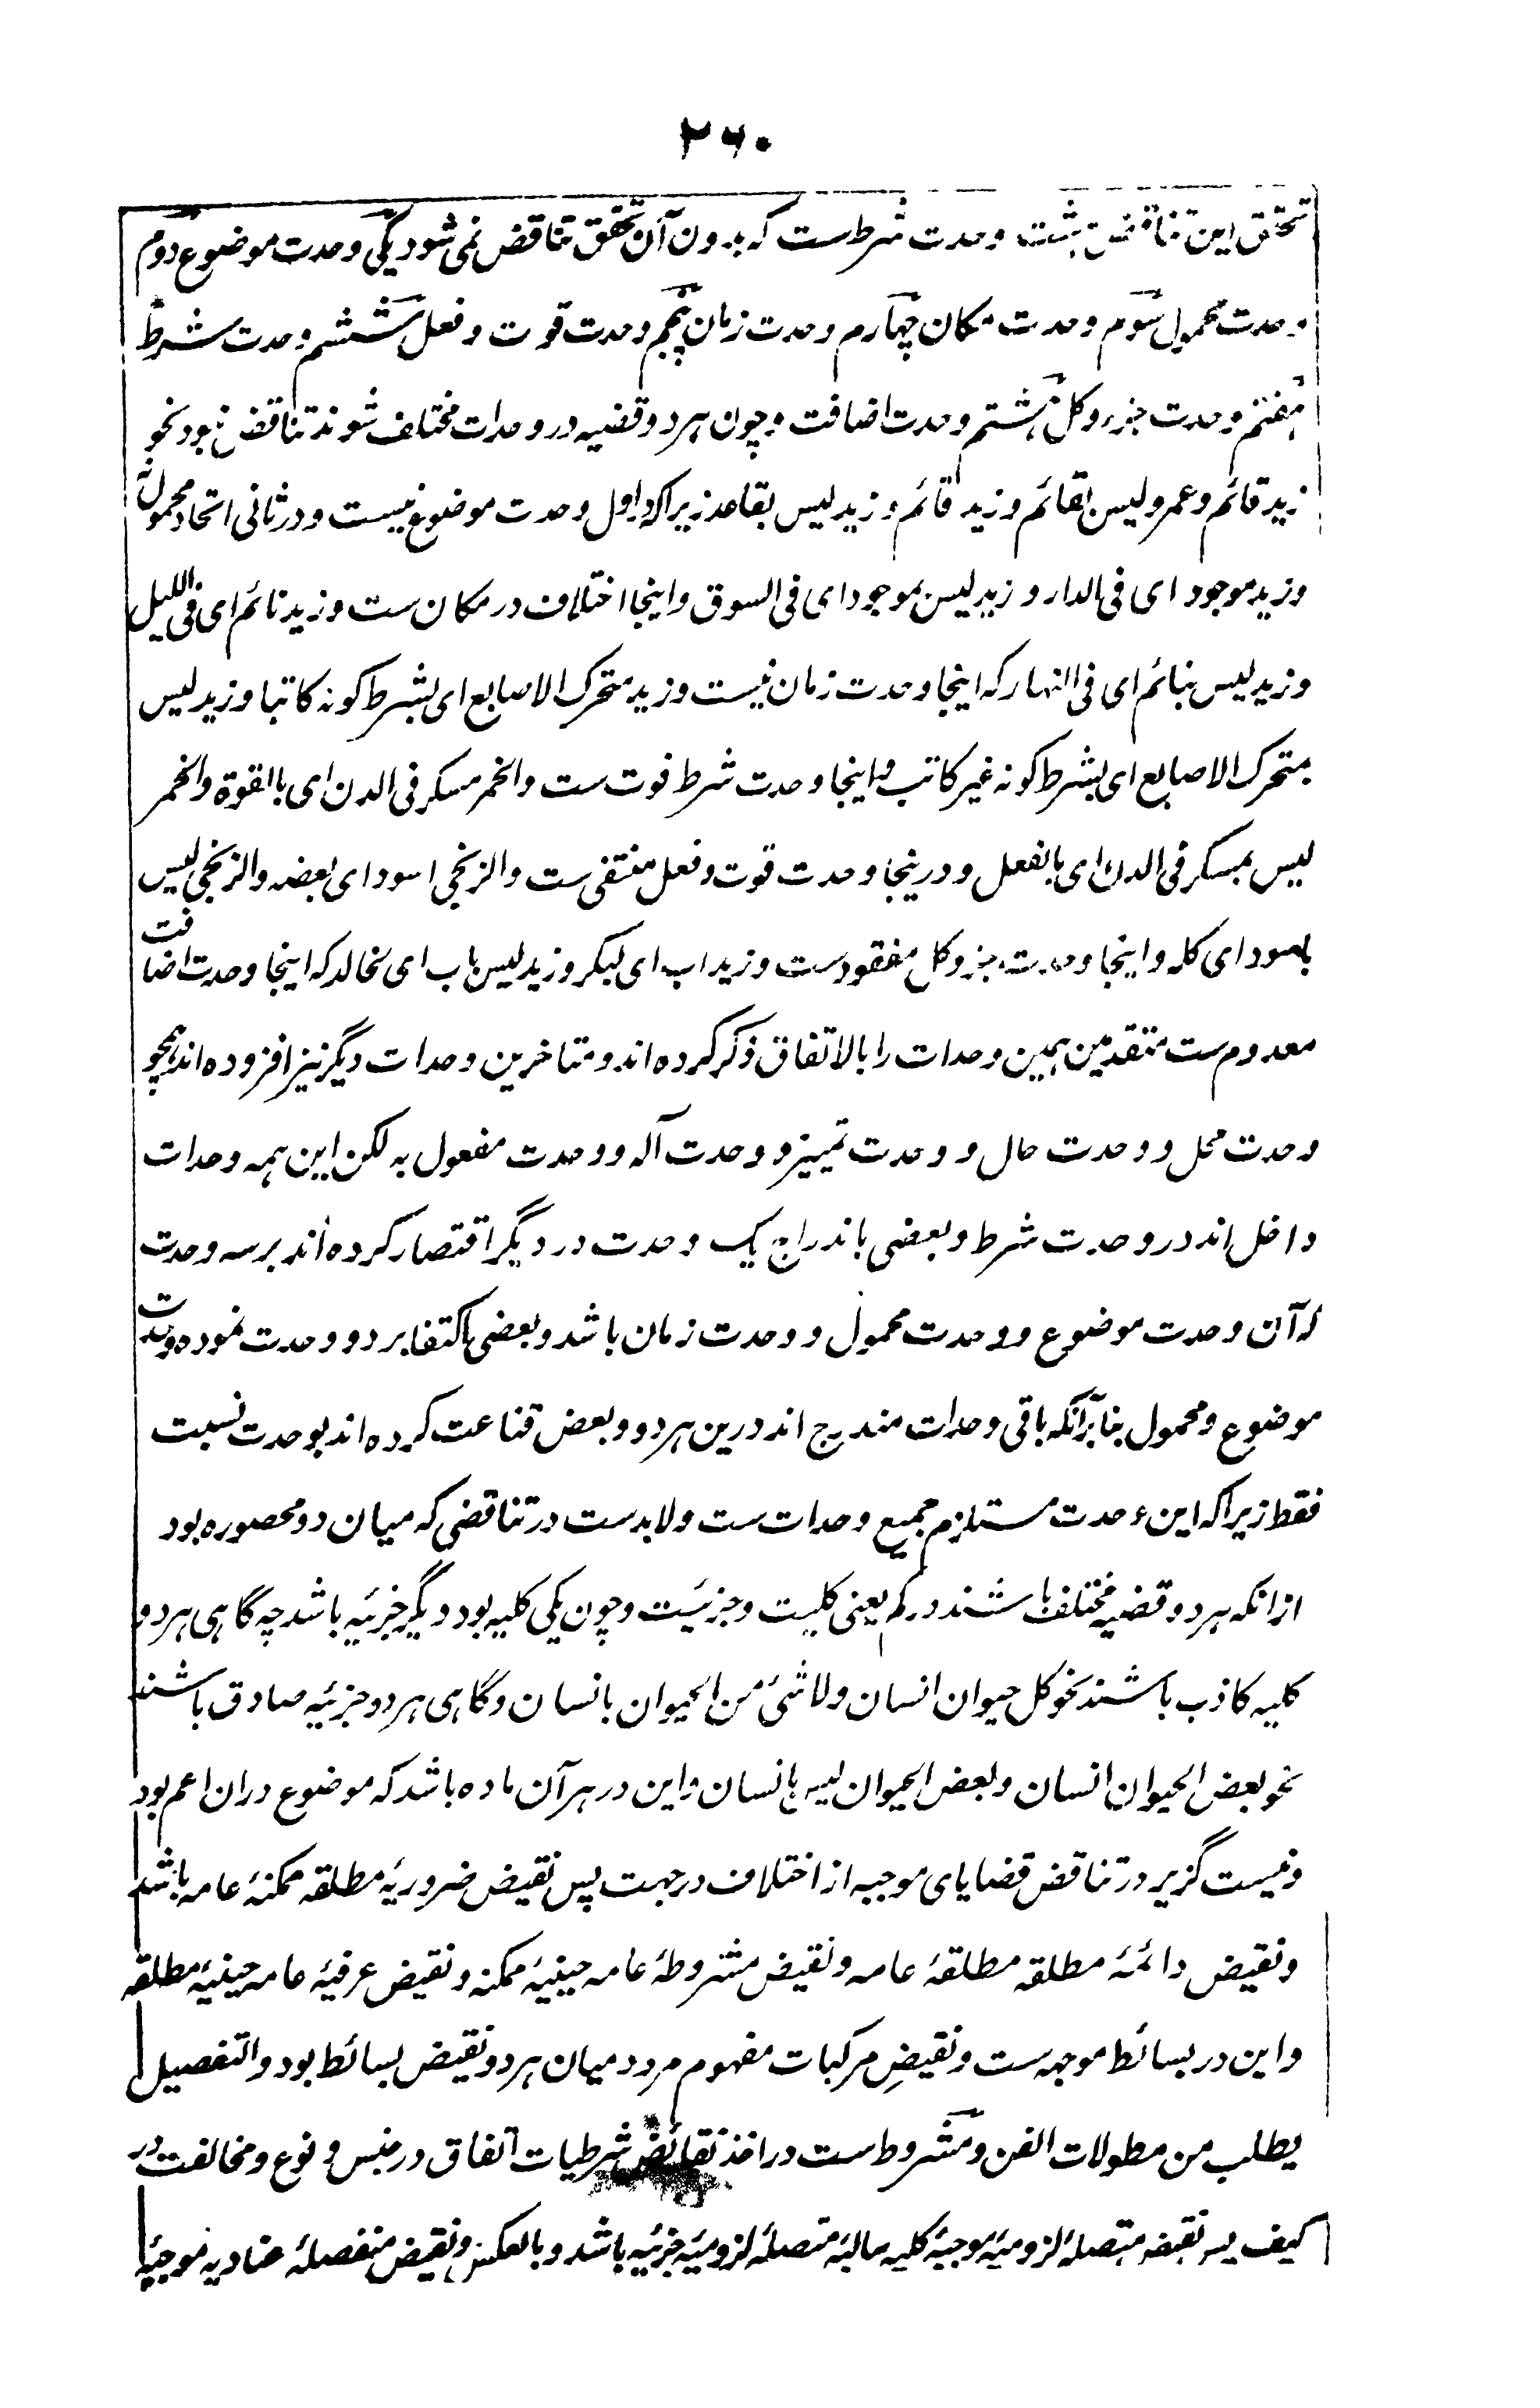 ۲۶۰
تحقق این تناقض هشت وحدت شرط ست که بدون آن تحقق تناقض نمی شود یکی وحدت موضوع دوم
وحدت محمول سوم وحدت مکان چهارم وحدت زمان پنجم وحدت قوت و فعل ششم وحدت شرط
هفتم وحدت جزء و کل هشتم وحدت اضافت و چون هر دو قضیه در وحدات مختلف شوند تناقض نبود نحو
زید قائم و عمرو لیس بقائم و زید قائم و زید لیس بقاعد زیرا که در اول وحدت موضوع نیست و در ثانی اتحاد محمول نه
و زید موجود ای فی الدار و زید لیس بموجود ای فی السوق و اینجا اختلاف در مکان ست و زید نائم ای فی اللیل
و زید لیس بنائم ای فی النهار که اینجا وحدت زمان نیست و زید متحرک الاصابع ای بشرط کونه کاتبا و زید لیس
بمتحرک الاصابع ای بشرط کونه غیر کاتب و اینجا وحدت شرط فوت ست والخمر مسکر فی الدن ای بالقوة والخمر
لیس بمسکر فی الدن ای بالفعل و درینجا وحدت قوت و فعل منتفی ست والزنجی اسود ای بعضه والزنجی لیس
باسود ای کله و اینجا وحدت جزو کل مفقودست و زید اب ای لبکر و زید لیس باب ای لخالد که اینجا وحدت اضافت
معدوم ست متقدمین همین وحدات را بالاتفاق ذکر کرده اند و متاخرین وحدات دیگر نیز افزوده اند همچو
وحدت محل و وحدت حال و وحدت تمییز و وحدت آله و وحدت مفعول به لکن این همه وحدات
داخل اند در وحدت شرط و بعضی باندراج یک وحدت در دیگر اقتصار کرده اند بر سه وحدت
که آن وحدت موضوع و وحدت محمول و وحدت زمان باشد و بعضی اکتفا بر دو وحدت نموده وحدت
موضوع و محمول بنا بر آنکه باقی وحدات مندرج اند درین هر دو و بعض قناعت کرده اند بوحدت نسبت
فقط زیرا که این وحدت مستلزم جمیع وحدات ست و لابدست در تناقضی که میان دو محصوره بود
از انکه هر دو قضیه مختلف باشند در کم یعنی کلیت و جزئیت و چون یکی کلیه بود دیگر جزئیه باشد چه گاهی هر دو
کلیه کاذب باشند نحو کل حیوان انسان ولا شئ من الحیوان بانسان و گاهی هر دو جزئیه صادق باشند
نحو بعض الحیوان انسان و بعض الحیوان لیس بانسان و این در هر آن ماده باشد که موضوع دران اعم بود
و نیست گزیر در تناقض قضایای موجبه از اختلاف در جهت پس نقیض ضروریهٔ مطلقه ممکنهٔ عامه باشد
و نقیض دائمهٔ مطلقه مطلقهٔ عامه و نقیض مشروطهٔ عامه حینیهٔ ممکنه و نقیض عرفیهٔ عامه حینیهٔ مطلقه
و این در بسائط موجهه ست و نقیضِ مرکبات مفهوم مردد میان هر دو نقیض بسائط بود والتفصیل
یطلب من مطولات الفن و مشروط ست در اخذ نقائض شرطیات اتفاق در جنس و نوع و مخالفت در
کیف پس نقیض متصلهٔ لزومیهٔ موجبهٔ کلیه سالبهٔ متصلهٔ لزومیهٔ جزئیه باشد و بالعکس و نقیض منفصلهٔ عنادیه موجبهٔ